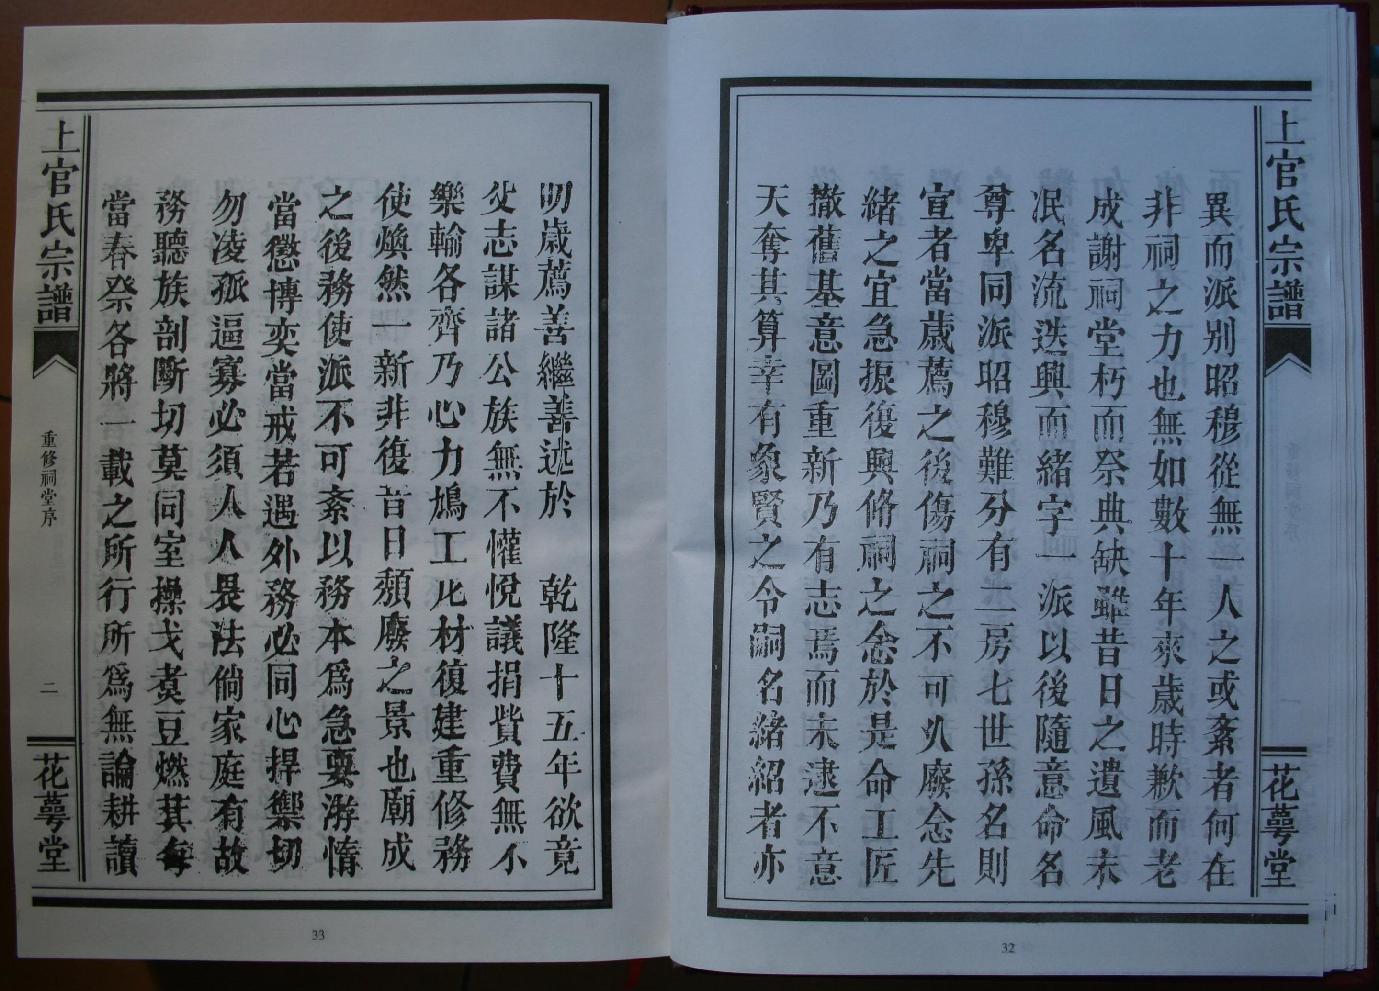 上官氏宗譜
花萼堂
異而派别昭穆從無一人之或紊者何在
非祠之力也無如數十年來歲時歉而老
成謝祠堂朽而祭典缺雖昔日之遺風未
泯名流迭興而緒字一派以後隨意命名
尊卑同派昭穆難分有二房七世孫名則
宜者當歲薦之後傷祠之不可久廢念先
緒之宜急振復興脩祠之念於是命工匠
撤舊基意圖重新乃有志焉而未逮不意
天奪其算幸有象賢之令嗣名緒紹者亦
32
上官氏宗譜
重修祠堂序
二
花萼堂
明歲薦善繼善述於 乾隆十五年欲竟
父志謀諸公族無不懽悅議捐貲費無不
樂輸各齊乃心力鳩工庀材復建重修務
使煥然一新非復昔日頹廢之景也廟成
之後務使派不可紊以務本爲急要游惰
當懲博奕當戒若遇外務必同心捍禦切
勿凌孤逼寡必須人人畏法倘家庭有故
務聽族剖斷切莫同室操戈煑豆燃萁每
當春祭各將一載之所行所爲無論耕讀
33